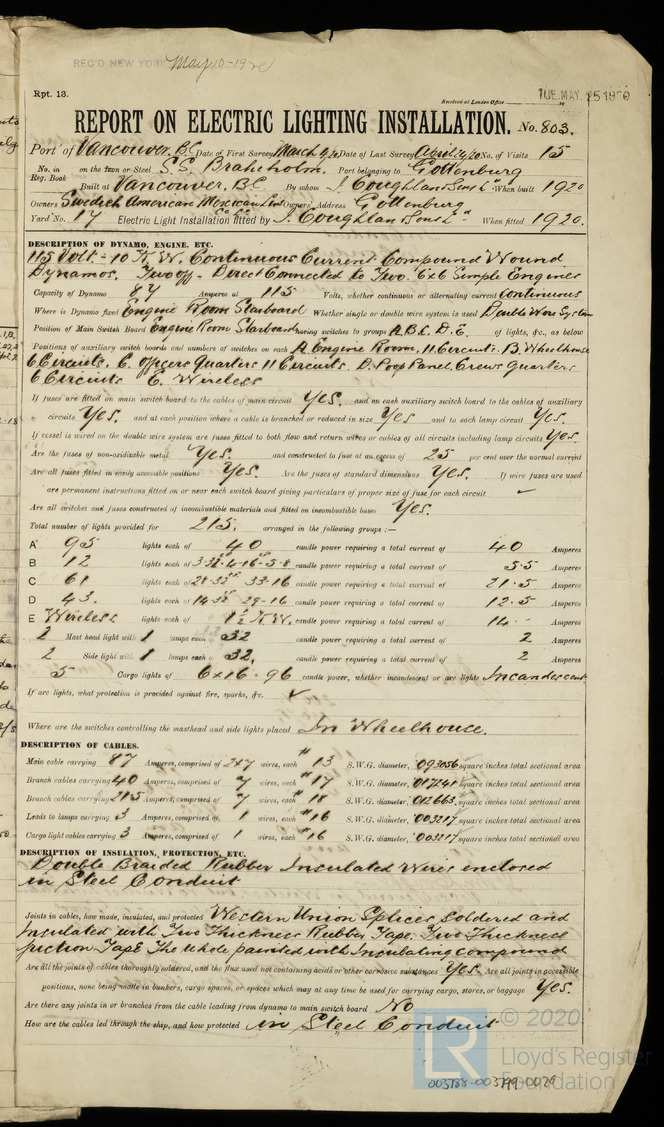 REC'D NEW YORK May 10-1920
Rpt. 13.
Received at London Office
TUE. MAY. 25 1920
REPORT ON ELECTRIC LIGHTING INSTALLATION. No. 803.
Port of Vancouver, B.C. Date of First Survey March 9/20 Date of Last Survey April 29/20 No. of Visits 15
No. in Reg. Book on the Iron or Steel S.S. Braheholm. Port belonging to Gottenburg
Built at Vancouver, B.C. By whom J. Coughlan & Sons Ld. When built 1920
Owners Swedish American Mexican Line Owners' Address Gottenburg
Yard No. 17 Electric Light Installation fitted by J. Coughlan & Sons Ld. When fitted 1920.
DESCRIPTION OF DYNAMO, ENGINE, ETC.
115 Volt - 10 K.W. Continuous Current Compound Wound
Dynamos. Two off - Direct Connected to Two. 6x6 Simple Engines
Capacity of Dynamo 87 Amperes at 115 Volts, whether continuous or alternating current Continuous
Where is Dynamo fixed Engine Room Starboard Whether single or double wire system is used Double Wire System
Position of Main Switch Board Engine Room Starboard having switches to groups A.B.C.D.E. of lights, &c., as below
Positions of auxiliary switch boards and numbers of switches on each A. Engine Room, 11 Circuits. B. Wheelhouse
6 Circuits. C. Officers Quarters 11 Circuits. D. Poop Panel, Crews Quarters
6 Circuits E. Wireless
If fuses are fitted on main switch board to the cables of main circuit Yes. and on each auxiliary switch board to the cables of auxiliary
circuits Yes. and at each position where a cable is branched or reduced in size Yes and to each lamp circuit Yes.
If vessel is wired on the double wire system are fuses fitted to both flow and return wires or cables of all circuits including lamp circuits Yes.
Are the fuses of non-oxidizable metal Yes. and constructed to fuse at an excess of 25 per cent over the normal current
Are all fuses fitted in easily accessible positions Yes. Are the fuses of standard dimensions Yes. If wire fuses are used
are permanent instructions fitted on or near each switch board giving particulars of proper size of fuse for each circuit ✓
Are all switches and fuses constructed of incombustible materials and fitted on incombustible bases Yes.
Total number of lights provided for 215. arranged in the following groups :—
A 95 lights each of 40 candle power requiring a total current of 40 Amperes
B 12 lights each of 3-32 4-16-5-8 candle power requiring a total current of 5.5 Amperes
C 61 lights each of 28-32 33-16 candle power requiring a total current of 21.5 Amperes
D 43. lights each of 14-32 29-16 candle power requiring a total current of 12.5 Amperes
E Wireless lights each of 1½ K.W. candle power requiring a total current of 14 - Amperes
2 Mast head light with 1 lamps each of 32 candle power requiring a total current of 2 Amperes
2 Side light with 1 lamps each of 32. candle power requiring a total current of 2 Amperes
5 Cargo lights of 6x16 - 96 candle power, whether incandescent or arc lights Incandescent
If arc lights, what protection is provided against fire, sparks, &c. ✓
Where are the switches controlling the masthead and side lights placed In Wheelhouse.
DESCRIPTION OF CABLES.
Main cable carrying 87 Amperes, comprised of wires, each #13 S.W.G. diameter, .093056 square inches total sectional area
Branch cables carrying 40 Amperes, comprised of 7 wires, each #17 S.W.G. diameter, .017241 square inches total sectional area
Branch cables carrying 21.5 Amperes, comprised of 7 wires, each #18 S.W.G. diameter, .012663 square inches total sectional area
Leads to lamps carrying 3 Amperes, comprised of 1 wires, each #16 S.W.G. diameter, .003217 square inches total sectional area
Cargo light cables carrying 3 Amperes, comprised of 1 wires, each #16 S.W.G. diameter, .003217 square inches total sectional area
DESCRIPTION OF INSULATION, PROTECTION, ETC.
Double Braided Rubber Insulated Wires enclosed
in Steel Conduit
Joints in cables, how made, insulated, and protected Western Union Splices Soldered and
Insulated with Two Thickness Rubber Tape. Two Thickness
friction Tape The whole painted with Insulating Compound
Are all the joints of cables thoroughly soldered, and the flux used not containing acids or other corrosive substances Yes. Are all joints in accessible
positions, none being made in bunkers, cargo spaces, or spaces which may at any time be used for carrying cargo, stores, or baggage Yes.
Are there any joints in or branches from the cable leading from dynamo to main switch board No
How are the cables led through the ship, and how protected in Steel Conduit
© 2020
LR
Lloyd's Register
Foundation
003788-003799-0026